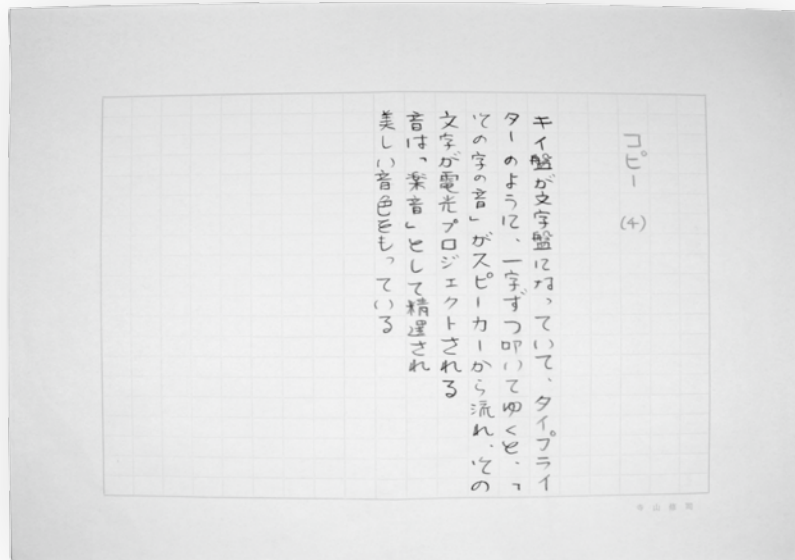 コピー (4)
キイ盤が文字盤になっていて、タイプライ
ターのように、一字ずつ叩いてゆくと、「
その字の音」がスピーカーから流れ、その
文字が電光プロジェクトされる
音は、「楽音」として精選され
美しい音色をもっている
寺山修司